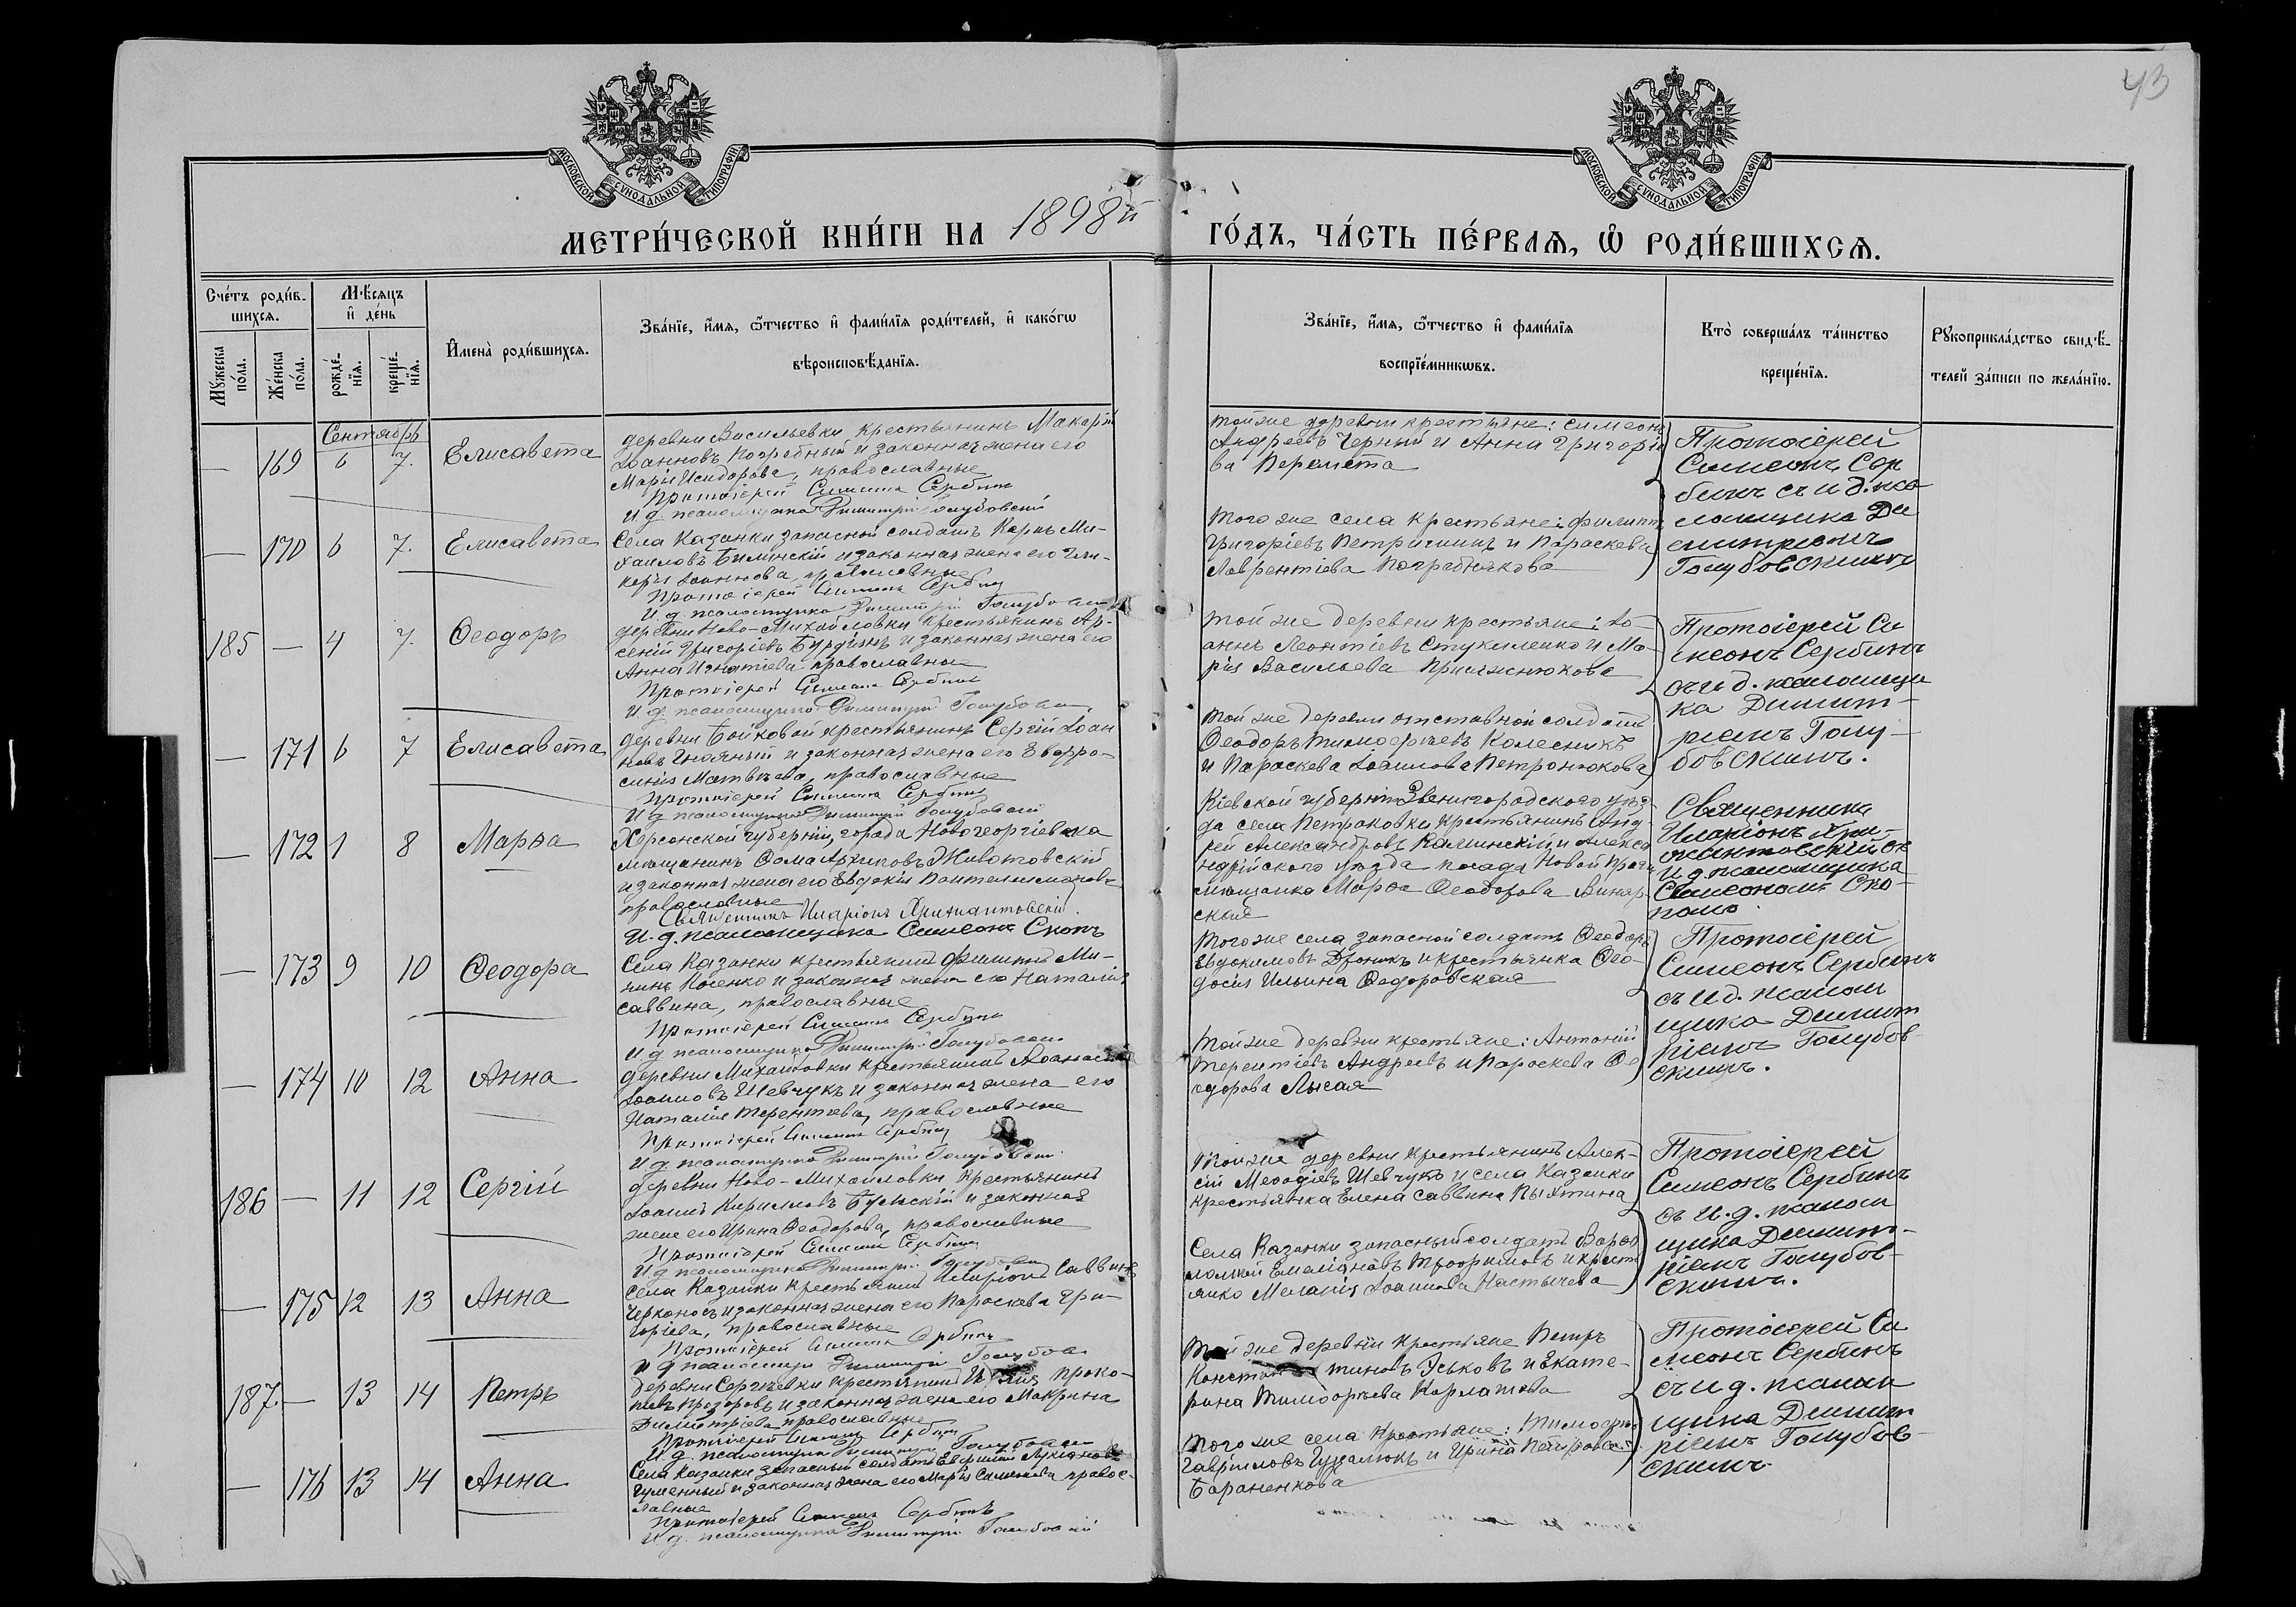 43
МОСКОВСКОЙ СѴНОДАЛЬНОЙ ТИПОГРАФІИ
МОСКОВСКОЙ СѴНОДАЛЬНОЙ ТИПОГРАФІИ
МЕТРИ́ЧЕСКОЙ КНИ́ГИ НА 1898й ГО́ДЪ, ЧА́СТЬ ПЕ́РВАЯ, Ѡ РОДИ́ВШИХСЯ.
Сче́тъ роди́в-
шихся.
Мѣ́сяцъ
и де́нь
Мꙋ́жеска
по́ла.
Же́нска
по́ла.
рожде́-
нїя.
креще́-
нїя.
И́мена роди́вшихся.
Зва́нїе, и́мя, ѻ҆́тчество и фами́лїя роди́телей, и како́гѡ
вѣроисповѣ́данїя.
Зва́нїе, и́мя, ѻ҆́тчество и фами́лїя
воспрїе́мникѡвъ.
Кто̀ соверша́лъ та́инство
креще́нїя.
Рꙋкоприкла́дство свидѣ́-
телей за́писи по жела́нїю.
Сентябрь
— 169 6 7. Елисавета
деревни Васильевки крестьянинъ Макарій
Іоанновъ Погребный и законная жена его
Марія Исидорова, православные
Протоіерей Симеонъ Сербинъ
И д. псаломщика Димитрій Голубовскій
тойже деревни крестьяне: Симеонъ
Андреевъ Черный и Анна Григорье
ва Перемета
Протоіерей
Симеонъ Сер
бинъ съ и д. пса
ломщика Ди
митріемъ
Голубовскимъ
— 170 6 7. Елисавета
Села Казанки запасной солдатъ Карпъ Ми-
хаиловъ Билинскій и законная жена его Гли-
керія Іоаннова, православные
Протоіерей Симеонъ Сербинъ
И. д. псаломщика Димитрій Голубовскій
того же села крестьяне: Филиппъ
Григоріевъ Петричинъ и Параскева
Лаврентіева Погребнякова
185 — 4 7. Ѳеодоръ
деревни Ново-Михайловки крестьянинъ Ар-
сеній Григоріевъ и законная жена его
Анна Игнатіева православные
Протоіерей Симеонъ Сербинъ
И. д. псаломщика Димитрій Голубовскій
той же деревни крестьяне: Іо-
аннъ Леонтіевъ Стукаленко и Ма-
рія Васильева Присяжнюкова
Протоіерей Си
меонъ Сербинъ
съ и д. псаломщи
ка Димит-
ріемъ Голу-
бовскимъ.
— 171 6 7 Елисавета
деревни Бойковой крестьянинъ Сергій Іоан
новъ Гнояный и законная жена его Евфро-
синія Матвѣева, православные
Протоіерей Симеонъ Сербинъ
И д псаломщика Димитрій Голубовскій
той же деревни отставной солдатъ
Ѳеодоръ Тимоѳеевъ Колесникъ
и Параскева Іоаннова Петронюкова
— 172 1 8 Марѳа
Херсонской губерніи, города Новогеоргіевска
мѣщанинъ Ѳома Архиповъ Животовскій
и законная жена его Евдокія Пантелеимонова
православные
Священникъ Иларіонъ Крижановскій.
И. д. псаломщика Симеонъ Скопъ
Кіевской губерніи Звенигородского уѣз-
да села Петраковки крестьянинъ Анд-
рей Александровъ Калинскій и Алекса
ндрійского уѣзда посада Новой Праги
мѣщанка Марѳа Ѳеодорова Винар-
ская
Священникъ
Иларіонъ
съ
И д. псаломщика
Симеономъ Ско-
помъ.
— 173 9 10 Ѳеодора
Села Казанки крестьянинъ Филиппъ Ми-
нинъ Косенко и законная жена его Наталія
Саввина, православные
Протоіерей Симеонъ Сербинъ
И д псаломщика Димитрій Голубовскій
того же села запасной солдатъ Ѳеодоръ
Евдокимовъ и крестьянка Ѳео-
досія Ильина Ѳедоровская
Протоіерей
Симеонъ Сербинъ
съ и д. псалом
щика Димит
ріемъ Голубов-
скимъ.
— 174 10 12 Анна
деревни Михайловки крестьянинъ Аѳанасій
Іоанновъ Шевчукъ и законная жена его
Наталія Терентіева, православные
Протоіерей Симеонъ Сербинъ
И д. псаломщика Димитрій Голубовскій
той же деревни крестьяне: Антоній
Терентіевъ Андреевъ и Параскева Ѳе
одорова Лысая
186 — 11 12 Сергій
деревни Ново-Михаиловки крестьянинъ
Іоаннъ Кирилловъ и законная
жена его Ирина Ѳеодорова, православные
Протоіерей Симеонъ Сербинъ
И д псаломщика Димитрій Голубовскій
той же деревни крестьянинъ Алек-
сій Меѳодіевъ Шевчукъ и села Казанки
крестьянка Елена Саввина Пыятина
Протоіерей
Симеонъ Сербинъ
съ и. д. псалом
щика Димит-
ріемъ Голубов-
скимъ.
— 175 12 13 Анна
Села Казанки крестьянинъ Иларіонъ Саввинъ
Черконосъ и законная жена его Параскева Гри-
горіева, православные
Протоіерей Симеонъ Сербинъ
И д псаломщика Димитрій Голубовскій
Села Казанки запасный солдатъ Варѳо
ломей Емеліановъ Трофимовъ и крестья
янка Меланія Іоаннова Настычева
187. — 13 14 Петръ
деревни Сергѣевки крестьянинъ Проко-
піевъ Прозоровъ и законная жена его Макрина
Димитріева православные
Протоіерей Симеонъ Сербинъ
И. д. псаломщика Димитрій Голубовскій
той же деревни крестьяне Петръ
Константиновъ Уськовъ и Екате-
рина Тимоѳеева Карлашева
Протоіерей Си
меонъ Сербинъ
съ и д. псалом
щика Димит
ріемъ Голубов-
скимъ
— 176 13 14 Анна
Села Казанки запасный солдатъ Евфимій Лукіановъ
Гуменный и законная жена его Марія Симеонова правос-
лавные
Протоіерей Симеонъ Сербинъ
И д. псаломщика Димитрій Голубовскій
того же села крестьяне: Тимоѳей
Гавріиловъ Гуцалюкъ и Ирина Петрова
Бараненкова